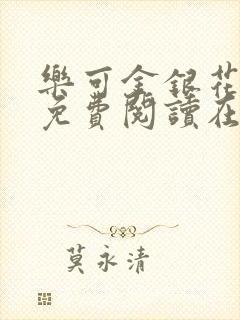 樂可金銀花
免費閱讀在
莫永清